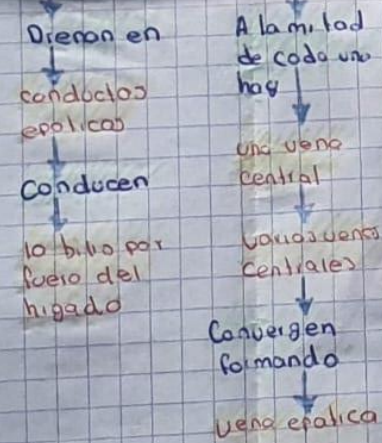 Drenan en
conductos
epaticas
Conducen
la bilis por
fuera del
higado
A la mitad
de cada uno
hay
una vena
central
varias venas
centrales
Convergen
formando
vena epatica